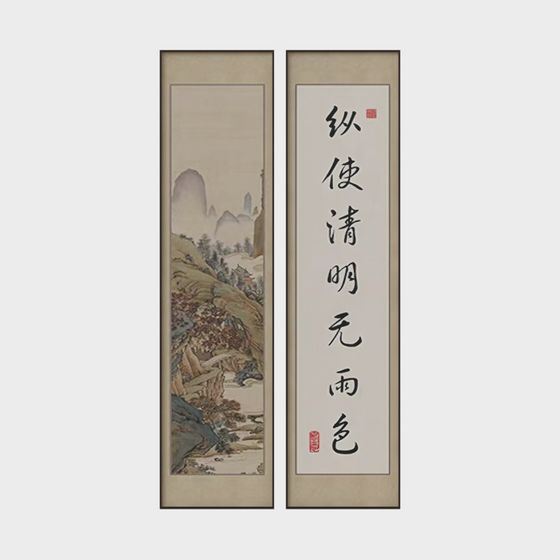 纵使清明无雨色